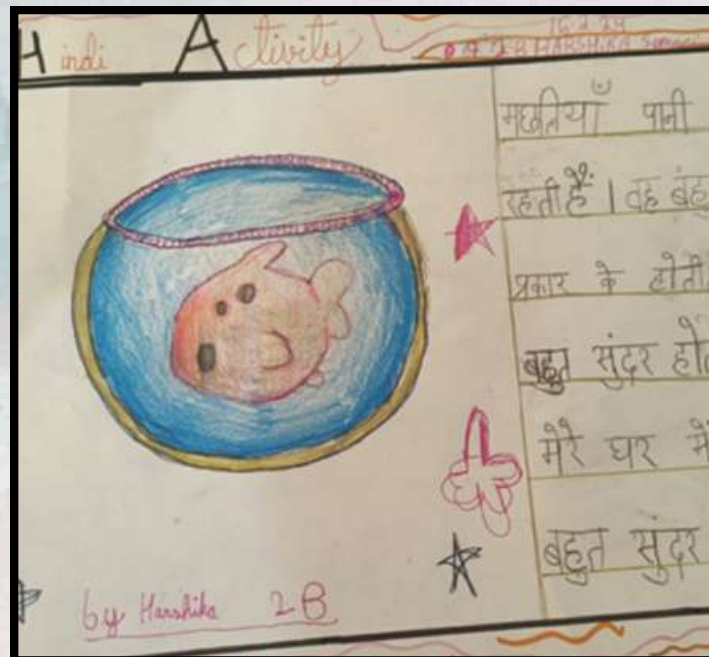 Hindi Activity
16.2.24
HARSHIKA
मछलियाँ पानी
रहती हैं। वह बह
प्रकार के होती
बहुत सुंदर हो
मेरे घर में
बहुत सुंदर
by Harshika 2B